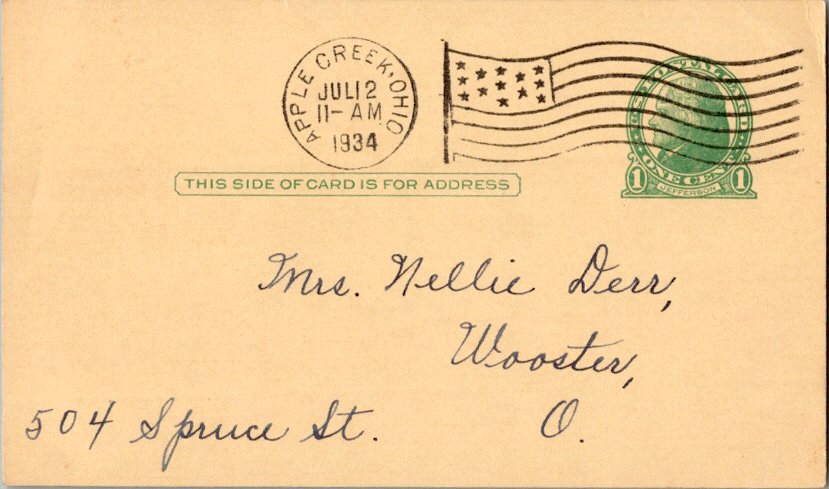 APPLE CREEK, OHIO
JUL 12
11- AM
1934
U.S. POSTAGE
ONE CENT
1 JEFFERSON 1
THIS SIDE OF CARD IS FOR ADDRESS
Mrs. Nellie Derr,
Wooster,
504 Spruce St. O.